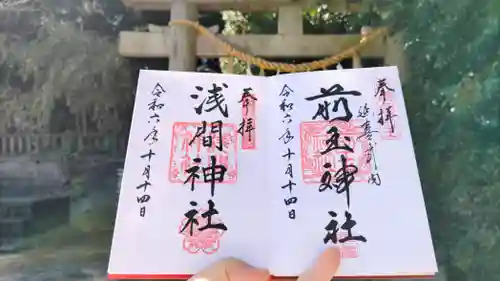 奉拝
延喜式内
前玉神社
令和六年十月十四日
奉拝
浅間神社
令和六年十月十四日